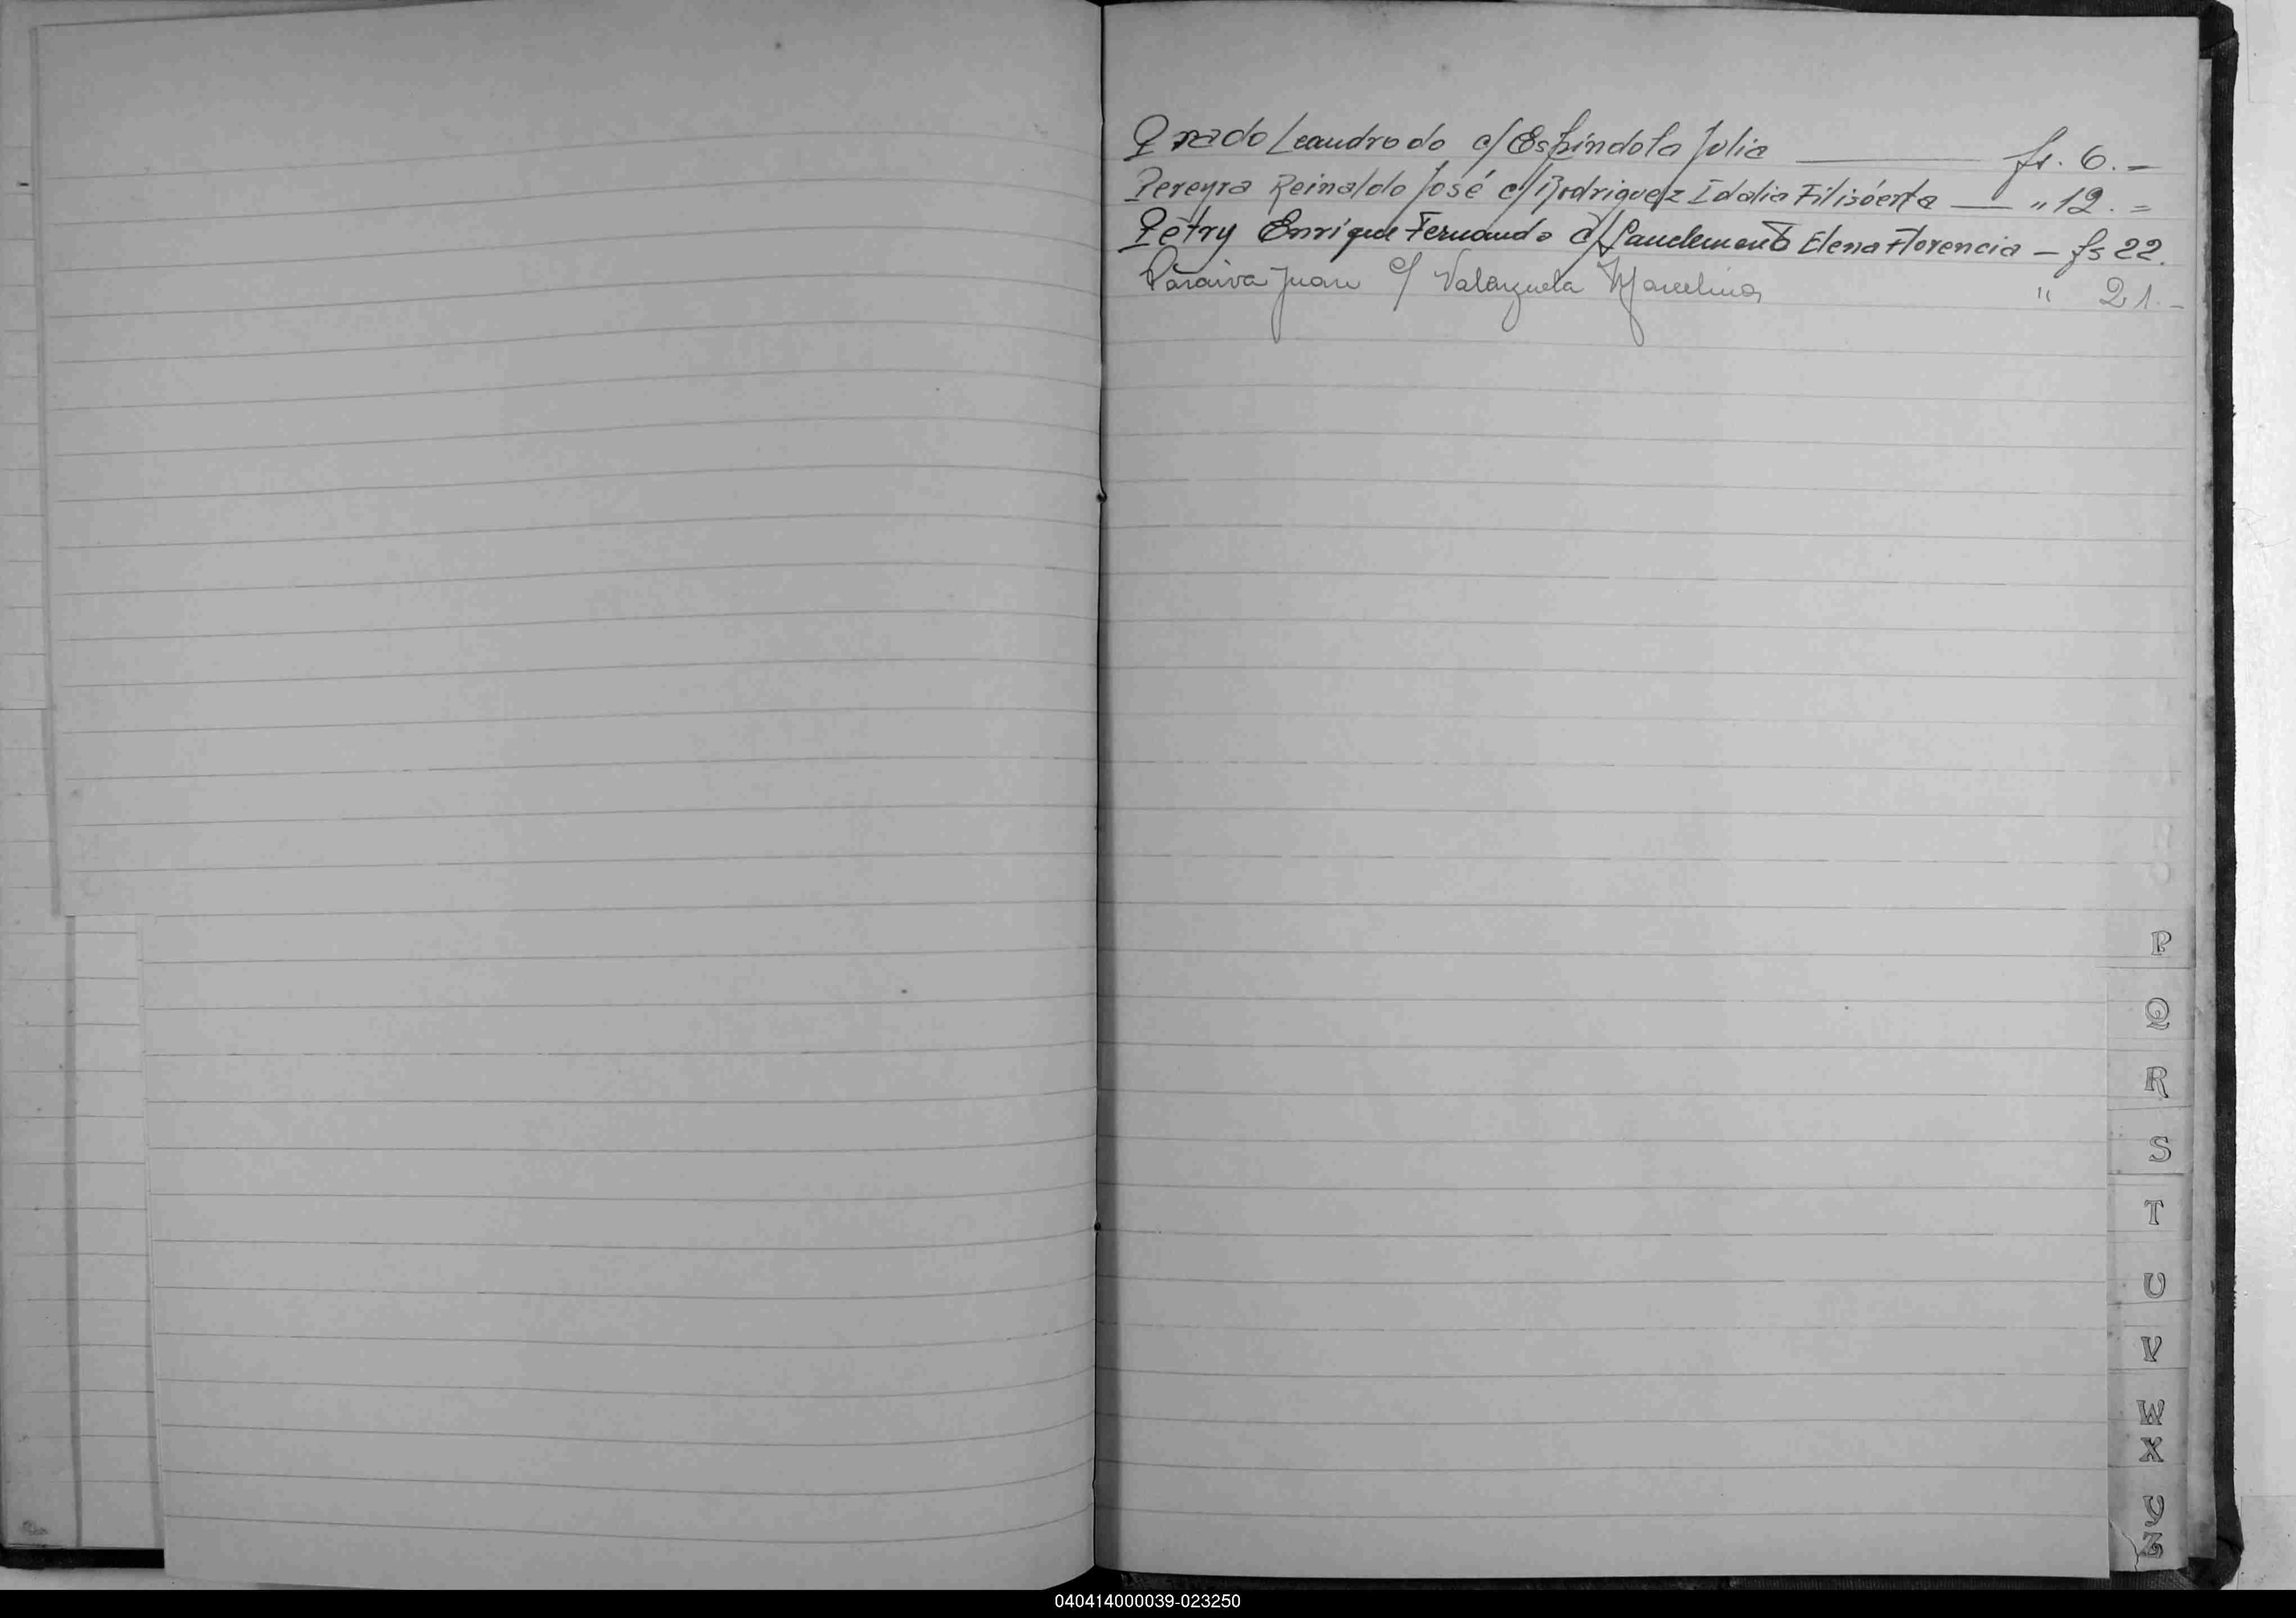 Prado Leandro do c/ Espíndola Julia fs. 6.-
Pereyra Reinaldo José c/ Rodriguez Idalia Filiberta " 12. =
Petry Enrique Fernando c/ Elena Florencia - fs 22.
Paraiva Juan c/ Valenzuela Marcelina " 21.-
P
Q
R
S
T
U
V
W
X
Y
Z
040414000039-023250